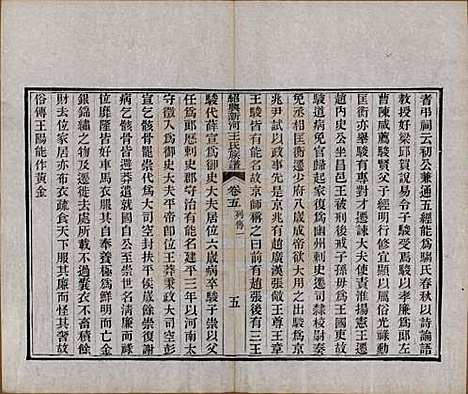 者甲祠云初公兼通五經能爲騶氏春秋以詩論語
教授好梁邱賀說易令子駿受焉駿以孝廉爲郎左
曹陳咸薦駿賢父子經明行修宜顯以厲俗光祿勳
匡衡亦舉駿有專對才遷諫大夫使責淮陽憲王遷
趙内史吉坐昌邑王被刑後戒子孫毋爲王國吏故
駿道病免官歸起家復爲幽州刺史遷司隸校尉奏
免丞相匡衡遷少府八歲成帝欲大用之出駿爲京
兆尹試以政事先是京兆有趙廣漢張敞王尊王章
王駿皆有能名故京師稱之曰前有趙張後有三王
紹興新河王氏族譜 卷五 列傳一 五
駿代薛宣爲御史大夫居位六歲病卒駿子崇以父
任爲郎歷刺史郡守治有能名建平三年以河南太
守徵入爲御史大夫平帝即位王莽秉政大司空彭
宣乞骸骨罷崇代爲大司空封扶平侯歲餘崇復謝
病乞骸骨避莽莽遣就國歲餘卒自吉至崇世名淸廉而祿
位彌隆皆好車馬衣服其自奉養極爲鮮明而亡金
銀錦繡之物及遷徙去處所載不過囊衣不畜積餘
財去位家居亦布衣疏食天下服其廉而怪其奢故
俗傳王陽能作黃金